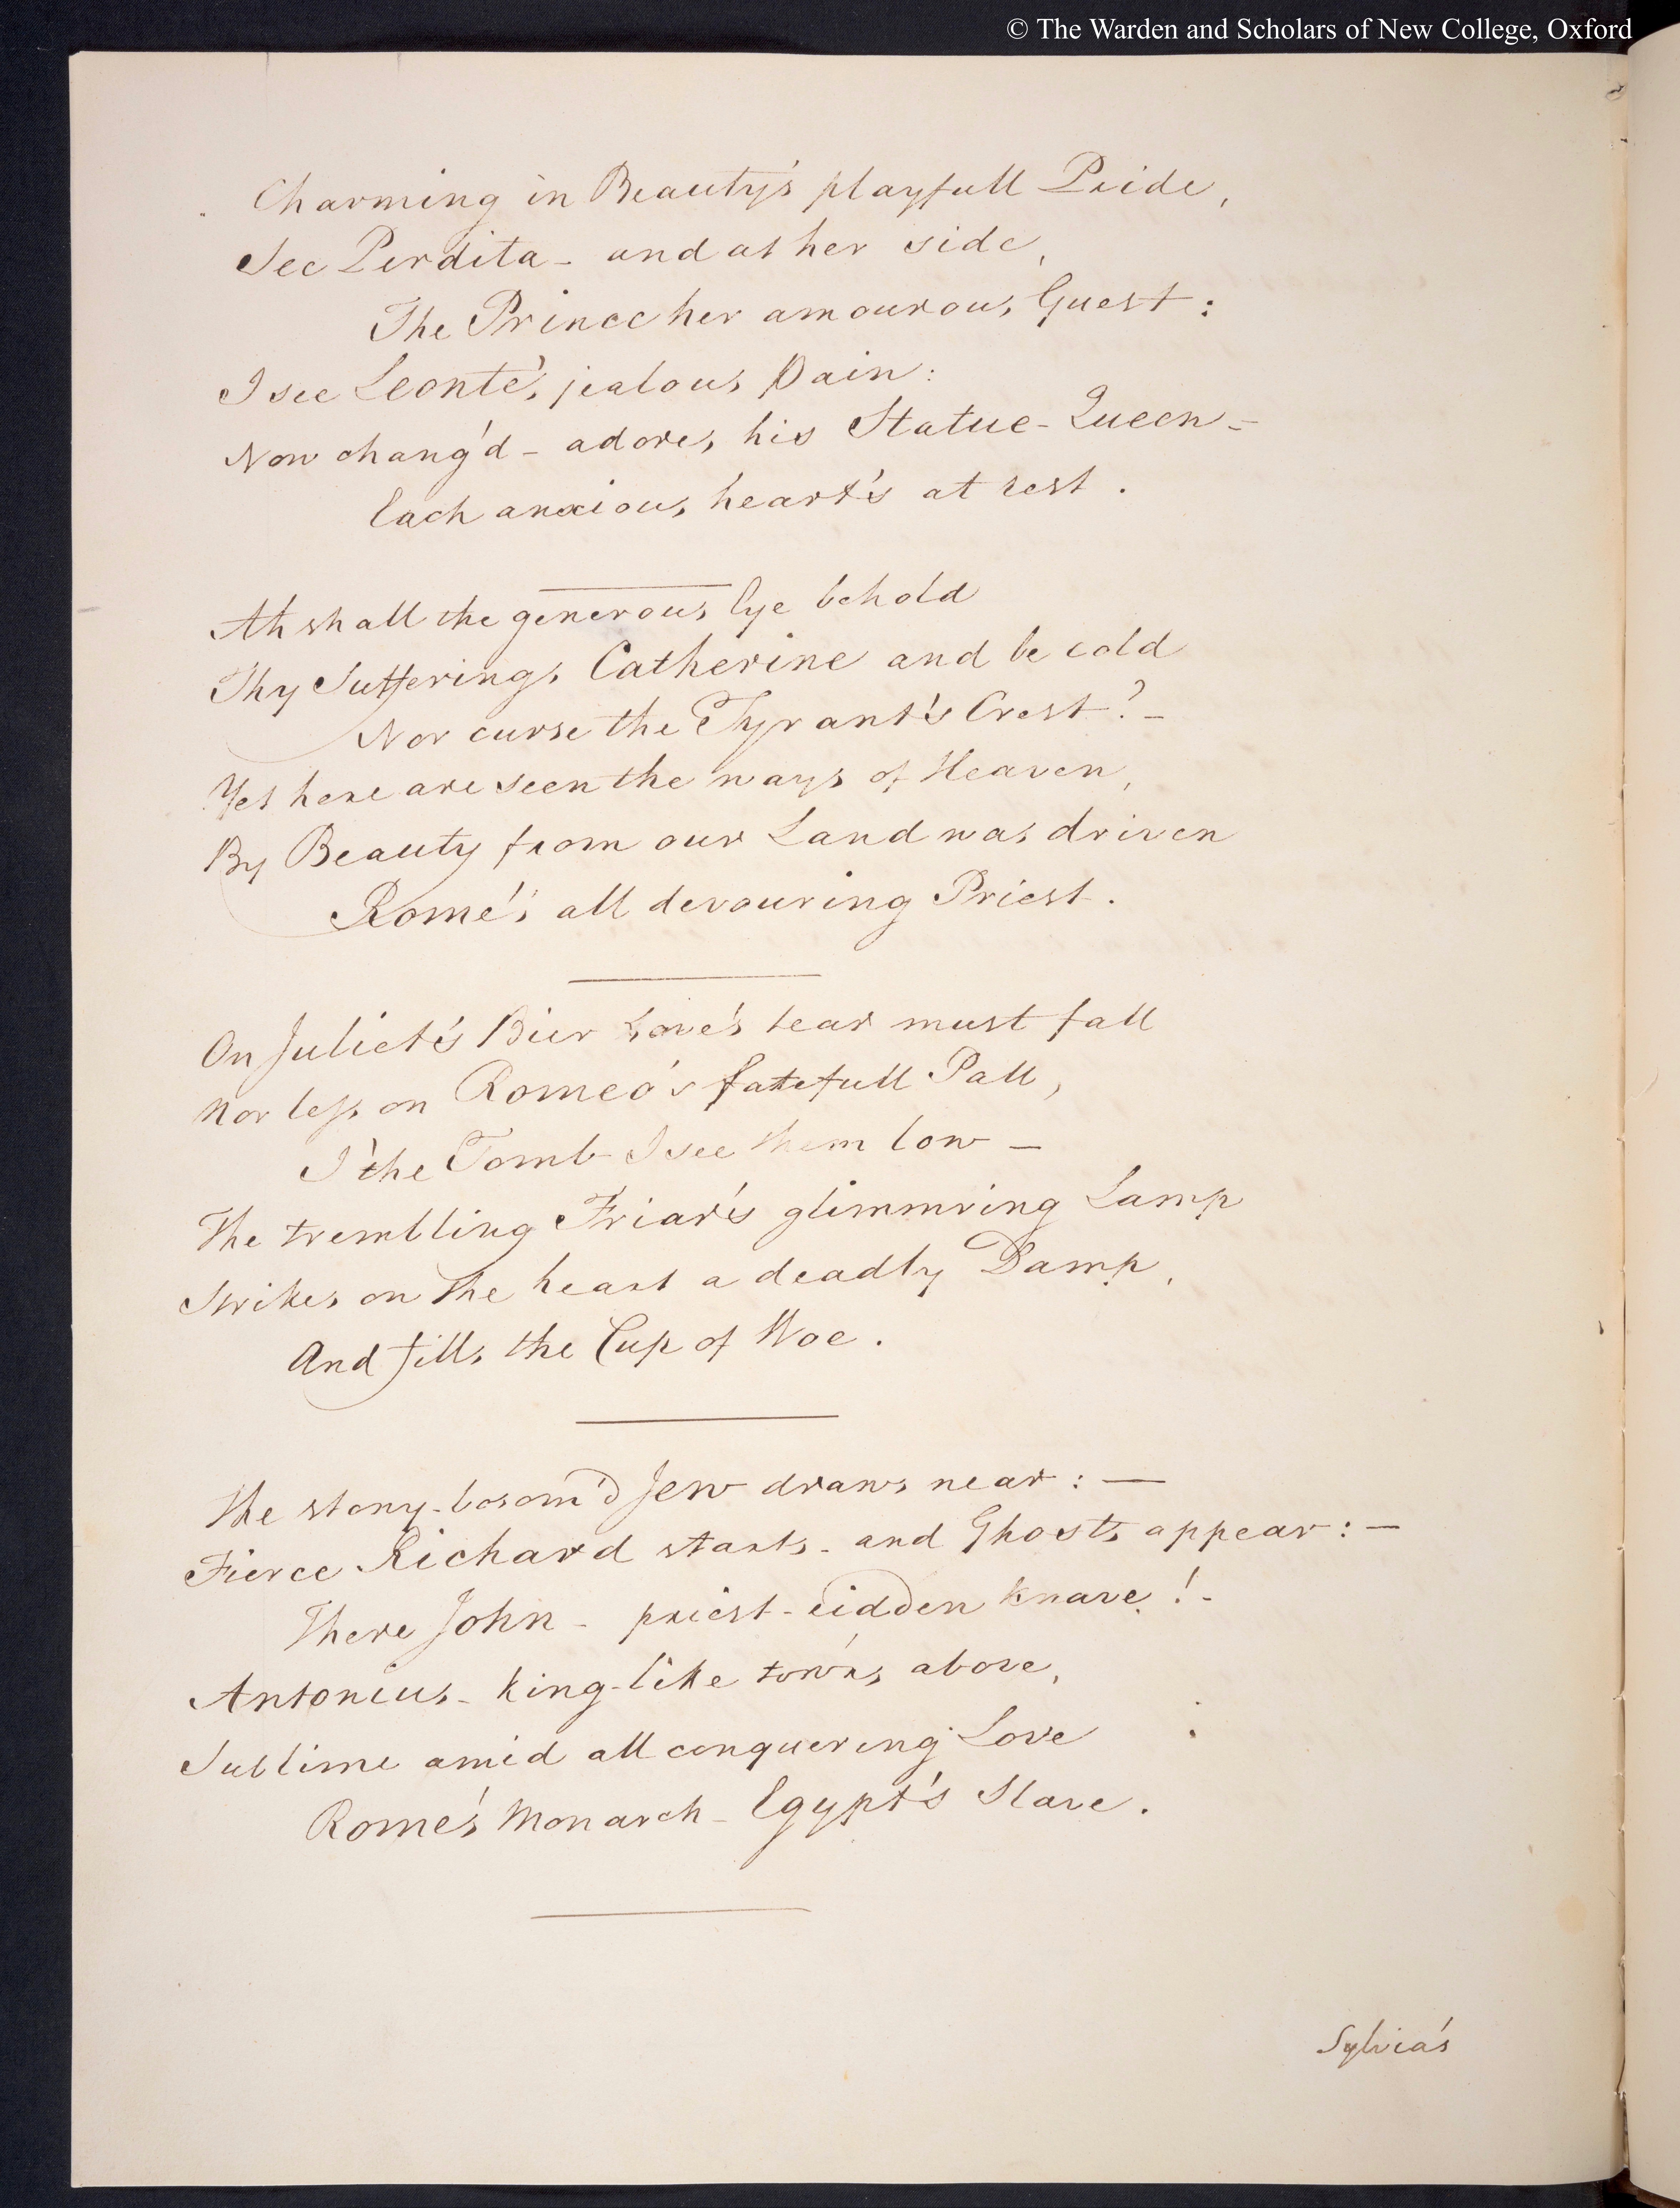 © The Warden and Scholars of New College, Oxford
Charming in Beauty's playfull Pride,
See Perdita - and at her side,
The Prince her amourous Guest:
I see Leonte's jealous Pain:
Now chang'd - adores his Statue-Queen -
Each anxious heart's at rest.
Ah shall the generous Eye behold
Thy Sufferings Catherine and be cold
Nor curse the Tyrant's Crest? -
Yet here are seen the ways of Heaven,
By Beauty from our Land was driven
Rome's all devouring Priest.
On Juliet's Bier Love's tear must fall
Nor less on Romeo's fatefull Pall,
I'the Tomb I see them low -
The trembling Friar's glimmring Lamp
Strikes on the heart a deadly Damp,
And fills the Cup of Woe.
The stony-bosom'd Jew draws near: -
Fierce Richard starts - and Ghosts appear: -
There John - priest-ridden knave! -
Antonius - king-like tow'rs above,
Sublime amid all conquering Love
Rome's Monarch - Egypt's Slave.
Sylvia's